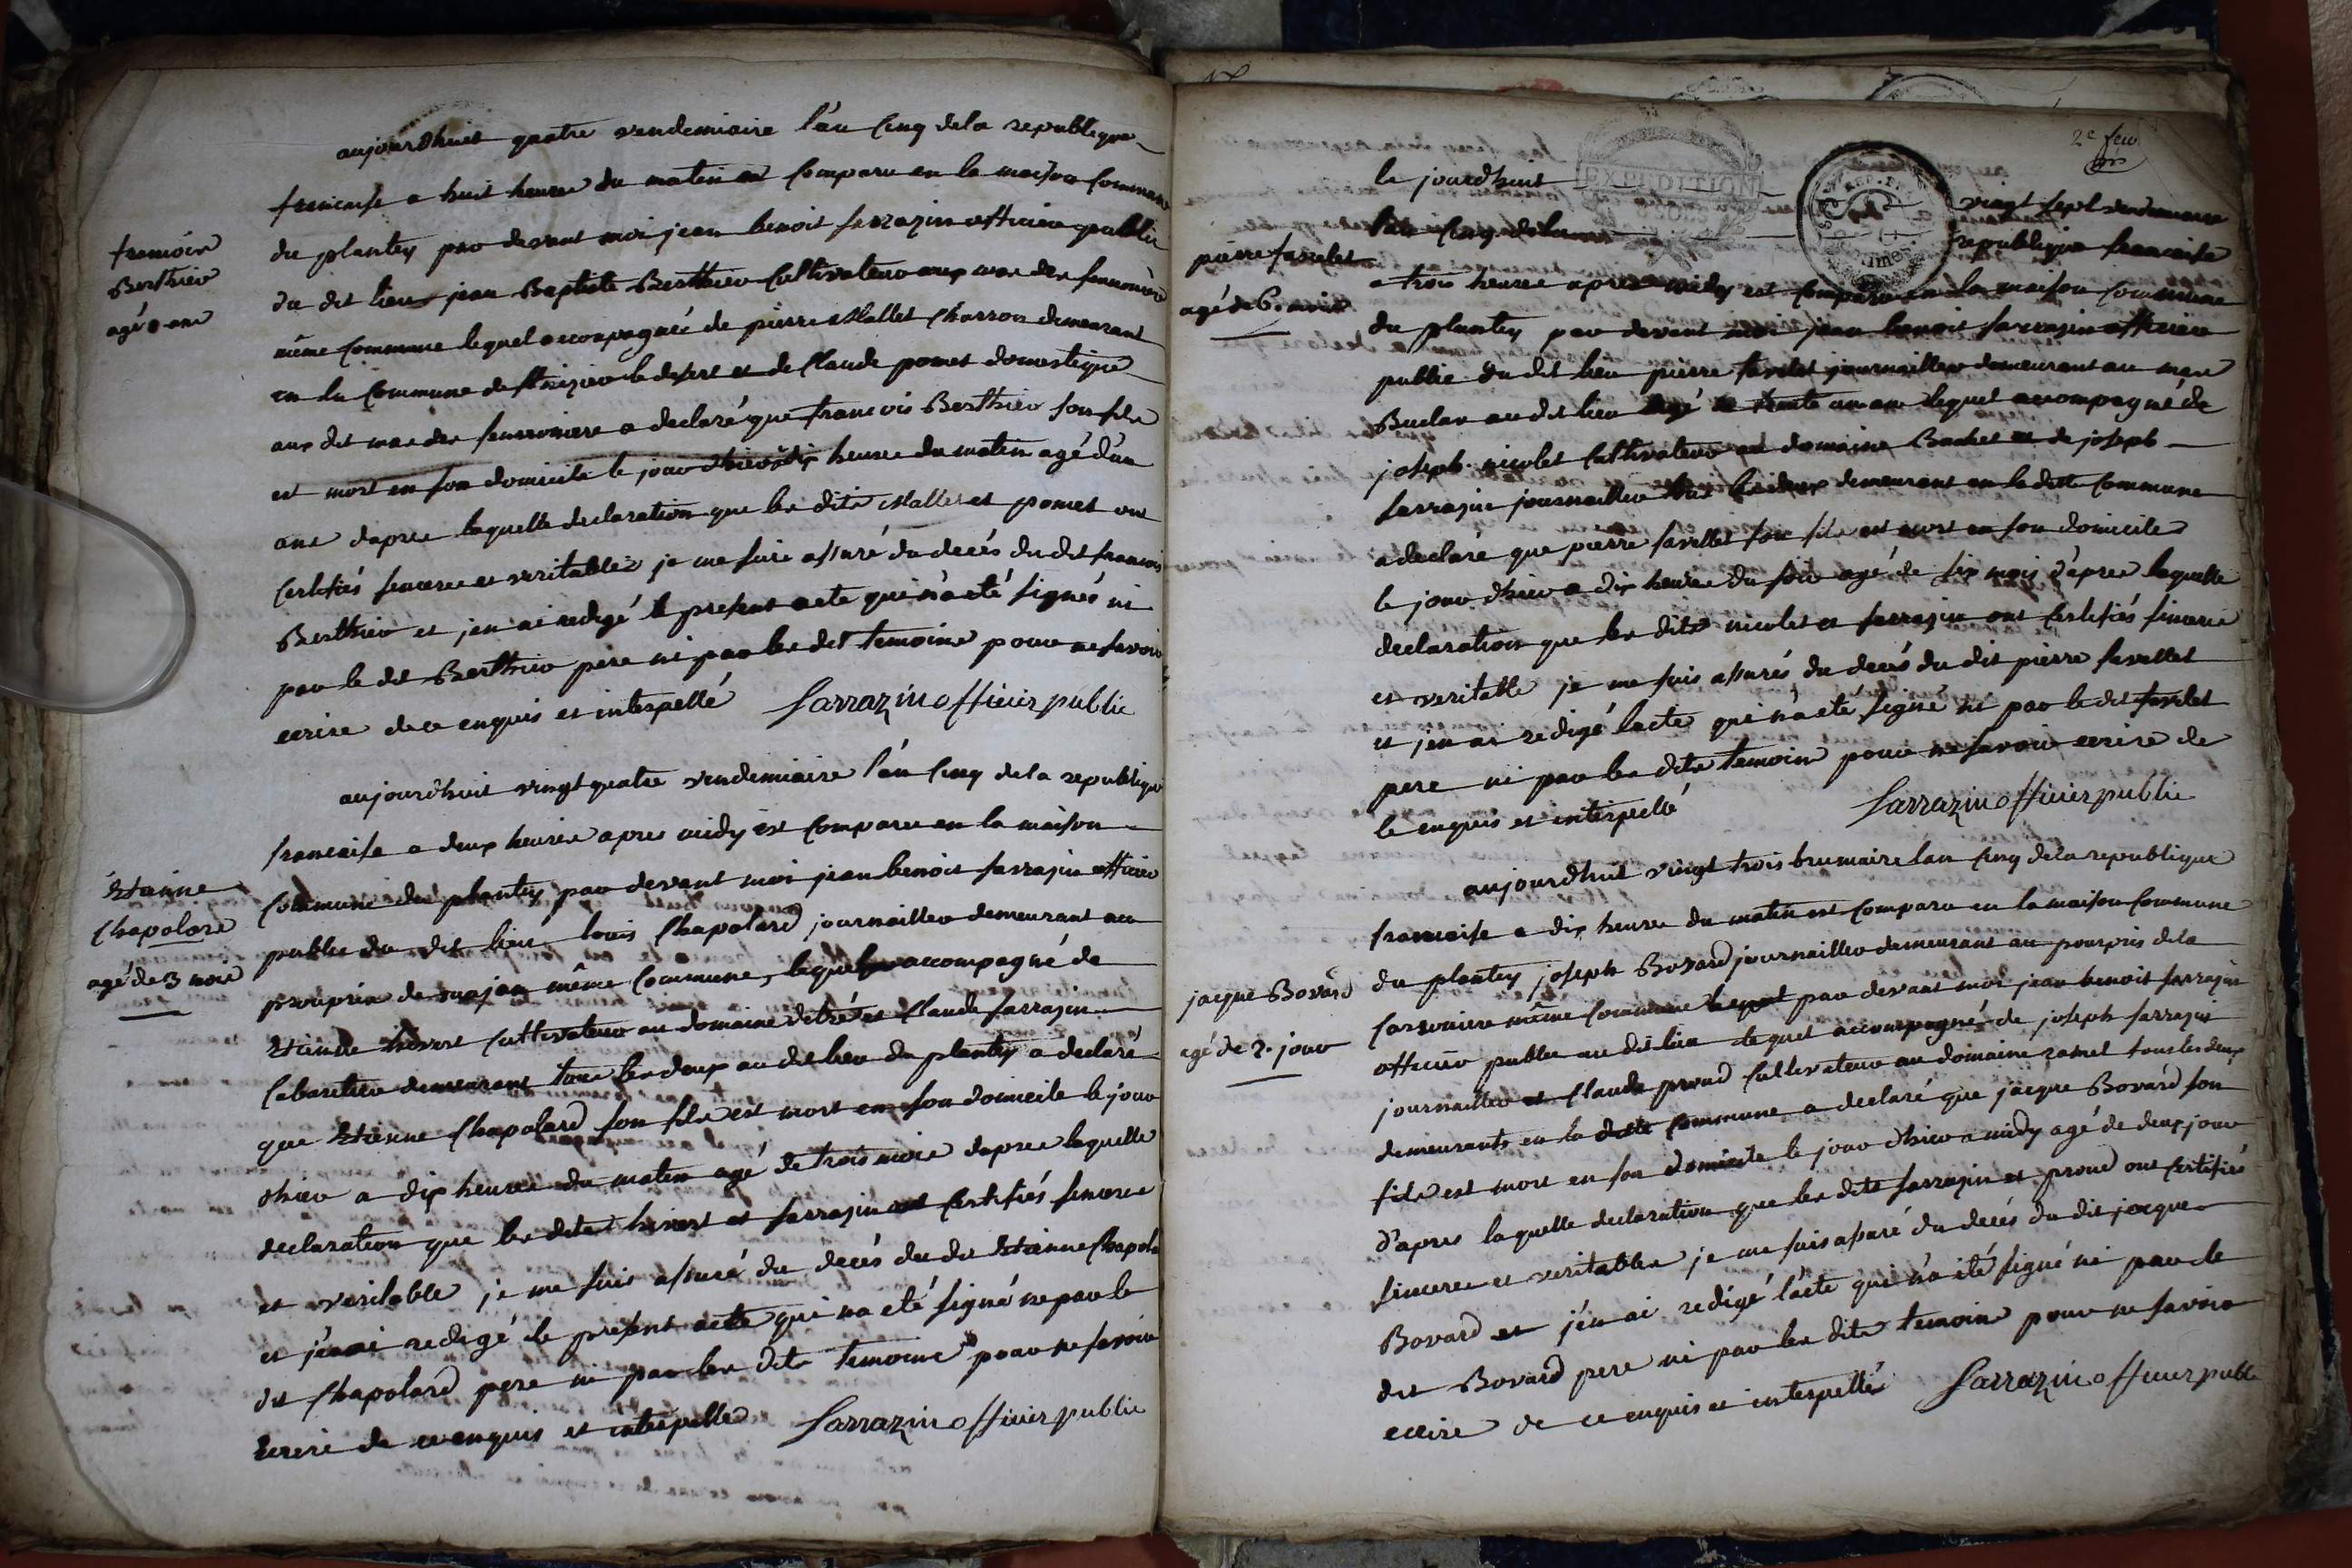 aujourdhuit quatre vendemiaire l'an Cinq dela republique
francaise a huit heures du matin est Comparu en la maison Commune
du plantey par devant moi jean benoit sarrazin officier public
du dit lieu jean Baptiste Berthier Cultivateur aux mas des
même Commune lequel accompagné de pierre Mallet Charron demeurant
en la Commune de st nizier le desert et de Claude pomet domestique
aux dit mas des a declaré que francois Berthier son fils
est mort en son domicile le jour dhier a dix heures du matin agé d'un
ans dapres laquelle declaration que les dits Mallet et pomet ont
Certifiés sincere et veritables je me suis assuré du decés du dit francois
Berthier et jen ai redigé le present acte qui n'a eté signés ni
par le dit Berthier pere ni par les dit temoins pour ne savoir
ecrire de ce enquis et interpellé Sarrazin officier public
francois
Berthier
agé ans
aujourdhuit vingt quatre vendemiaire l'an Cinq dela republique
francaise a deux heures apres midy est Comparu en la maison
Commune du plantey par devant moi jean benoit sarrazin officier
public du dit lieu louis Chapolard journaillier demeurant au
pourpris de même Commune, lequel accompagné de
Etienne hivert Cultivateur au domaine et Claude sarrazin
Cabaretier demeurant tous les deux au dit lieu du plantey a declaré
que Etienne Chapolard son fils est mort en son domicile le jour
dhier a dix heures du matin agé de trois mois dapres laquelle
declaration que les dits hivert et sarrazin ont Certifiés sincere
et veritable je me suis assuré du decés du dit Etienne Chapola
et j'enai redigé le present acte qui na eté signé ne par le
dit Chapolard pere ni par les dits temoins pour ne savoir
Ecrire de ce enquis et interpelle Sarrazin officier public
Etienne
Chapolard
agé de 3 mois
2e feu
le jourdhuit vingt sept vendemiaire
EXPEDITION
l'an Cinq dela republique francaise
a trois heures apres midy est Comparu en la maison Commune
du plantey par devant moi jean benoit sarrazin officier
public du dit lieu pierre favelet journaillier demeurant au mas
Buclar au dit lieu agé de trente un ans lequel accompagné de
joseph nicolet Cultivateur au domaine Bachet et de joseph
sarrazin journaillier tous les deux demeurant en la dite Commune
a declaré que pierre favellet son fils est mort en son domicile
le jour dhier a dix heures du soir agé de six mois d'apres laquelle
declaration que les dits nicolet et sarrazin ont Certifiés sincere
et veritable je me suis assurés du decés du dit pierre favellet
et jen ai redigé lacte qui n'a eté signé ni par le dit favelet
pere ni par les dits temoins pour ne savoir ecrire de
le enquis et interpellé Sarrazin officier public
pierre favelet
agé de 6. mois
aujourdhuit vingt trois brumaire lan Cinq dela republique
francaise a dix heures du matin est Comparu en la maison Commune
du plantey joseph Bovard journaillier demeurant au pourpris dela
même Commune par devant moi jean benoit sarrazin
officier public au dit lieu lequel accompagné de joseph sarrazin
journaillier et Claude proud Cultivateur au domaine ramel tous les deux
demeurants en la dite Commune a declaré que jacque Bovard son
fils est mort en son domicile le jour dhier a midy agé de deux jour
d'apres laquelle declaration que les dits sarrazin et proud ont Certifiés
sinceres et veritables je me suis assuré du decés du dit jacque
Bovard et j'en ai redigé l'acte qui n'a été signé ni par le
dit Bovard pere ni par les dits temoins pour ne savoir
ecrire de ce enquis et interpellés Sarrazin officier publi
jacque Bovard
agé de 2. jour